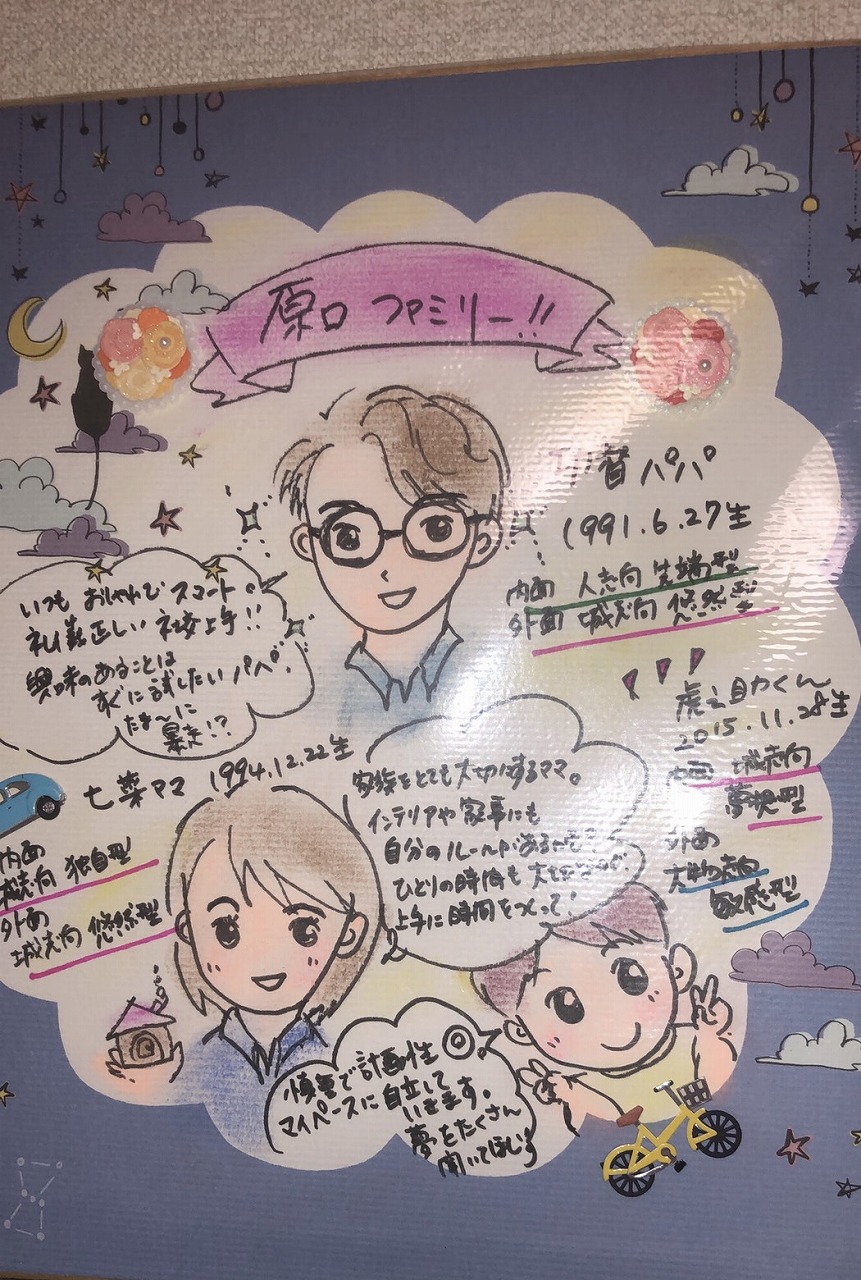 原口 ファミリー!!
督 パパ
1991.6.27生
内面 人志向
外面 城志向 悠然型
いつも おしゃれで スマート。
礼義正しい 社交上手!!
興味のあることは
すぐに試したいパパ。
たま〜に
暴走!?
虎之助くん
2015.11.28生
内面 城志向
夢想型
外面
大物志向
敏感型
七菜ママ 1994.12.22生
内面
独自型
外面
城志向 悠然型
家族をとても大切にするママ。
インテリアや家事にも
自分のルールがある
ひとりの時間も
上手に時間をつくって!
慎重で計画性◎
マイペースに自立して
いきます。
夢をたくさん
聞いてほしい